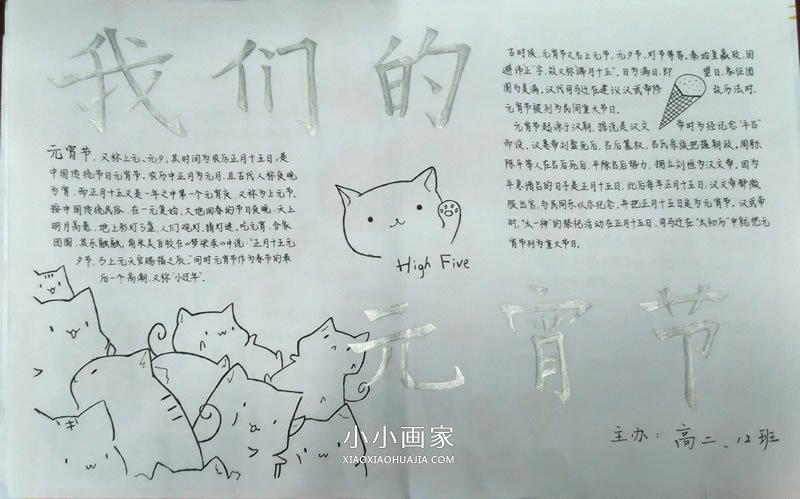 我们的
元宵节,又称上元、元夕,其时间为农历正月十五日,是
中国传统节日元宵节,农历中正月为元月,且古代人称夜晚
为宵,而正月十五又是一年之中第一个元宵夜,又称为上元节,
按中国传统民俗,在一元复始、大地回春的节日夜晚,天上
明月高悬,地上彩灯万盏,人们观灯、猜灯谜、吃元宵,合家
团圆,其乐融融。南宋吴自牧在《梦粱录》中说:“正月十五元
夕节,乃上元天官赐福之辰。”同时元宵节作为春节的最
后一个高潮,又称“小过年”。
古时候,元宵节又名上元节、元夕节、灯节等等,秦始皇嬴政,因
避讳正“字,故又称端月十五”,日为满日,即望日,象征团
圆与美满,汉代司马迁在建议汉武帝修改历法时,
元宵节被列为民间重大节日。
元宵节起源于汉朝,据说是汉文帝时为经纪念“平吕”
而设,汉惠帝刘盈死后,吕后篡权,吕氏宗族把握朝政,周勃
陈平等人在吕后死后,平除吕后势力,拥立刘恒为汉文帝,因为
平息诸吕的日子是正月十五日,此后每年正月十五日,汉文帝都微
服出宫,与民同乐以示纪念,并把正月十五日定为元宵节,汉武帝
时,“太一神”的祭祀活动在正月十五日,司马迁在“太初历”中就把元
宵节列为重大节日。
High Five
元宵节
主办:高二、12班
小小画家
XIAOXIAOHUAJIA.COM